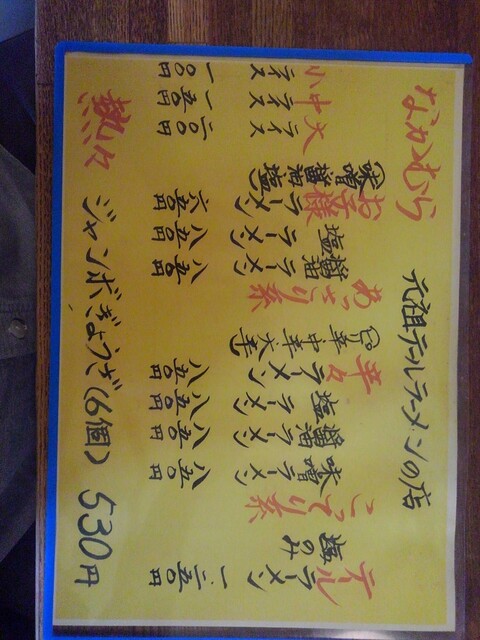 なかむら 元祖テールラーメンの店
テールラーメン 一二五〇円
塩のみ
こってり系
味噌ラーメン 八五〇円
醤油ラーメン 八五〇円
塩ラーメン 八五〇円
辛々ラーメン 八五〇円
中辛大辛
あっさり系
醤油ラーメン 八五〇円
塩ラーメン 八五〇円
お子様ラーメン 六五〇円
(味噌 醤油 塩)
大ライス 二〇〇円
中ライス 一五〇円
小ライス 一〇〇円
熱々 ジャンボぎょうざ(6個) 530円